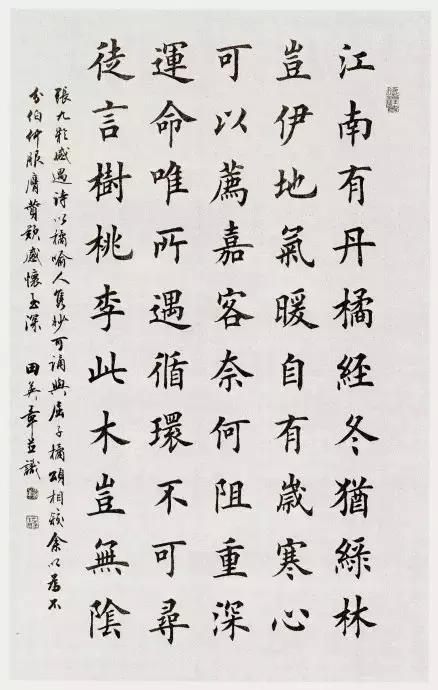 江南有丹橘經冬猶綠林
豈伊地氣暖自有歲寒心
可以薦嘉客奈何阻重深
運命唯所遇循環不可尋
徒言樹桃李此木豈無陰
張九齡感遇詩以橘喻人雋妙可誦與屈子橘頌相較余以為不
分伯仲服膺贊頌感懷至深 田英章並識